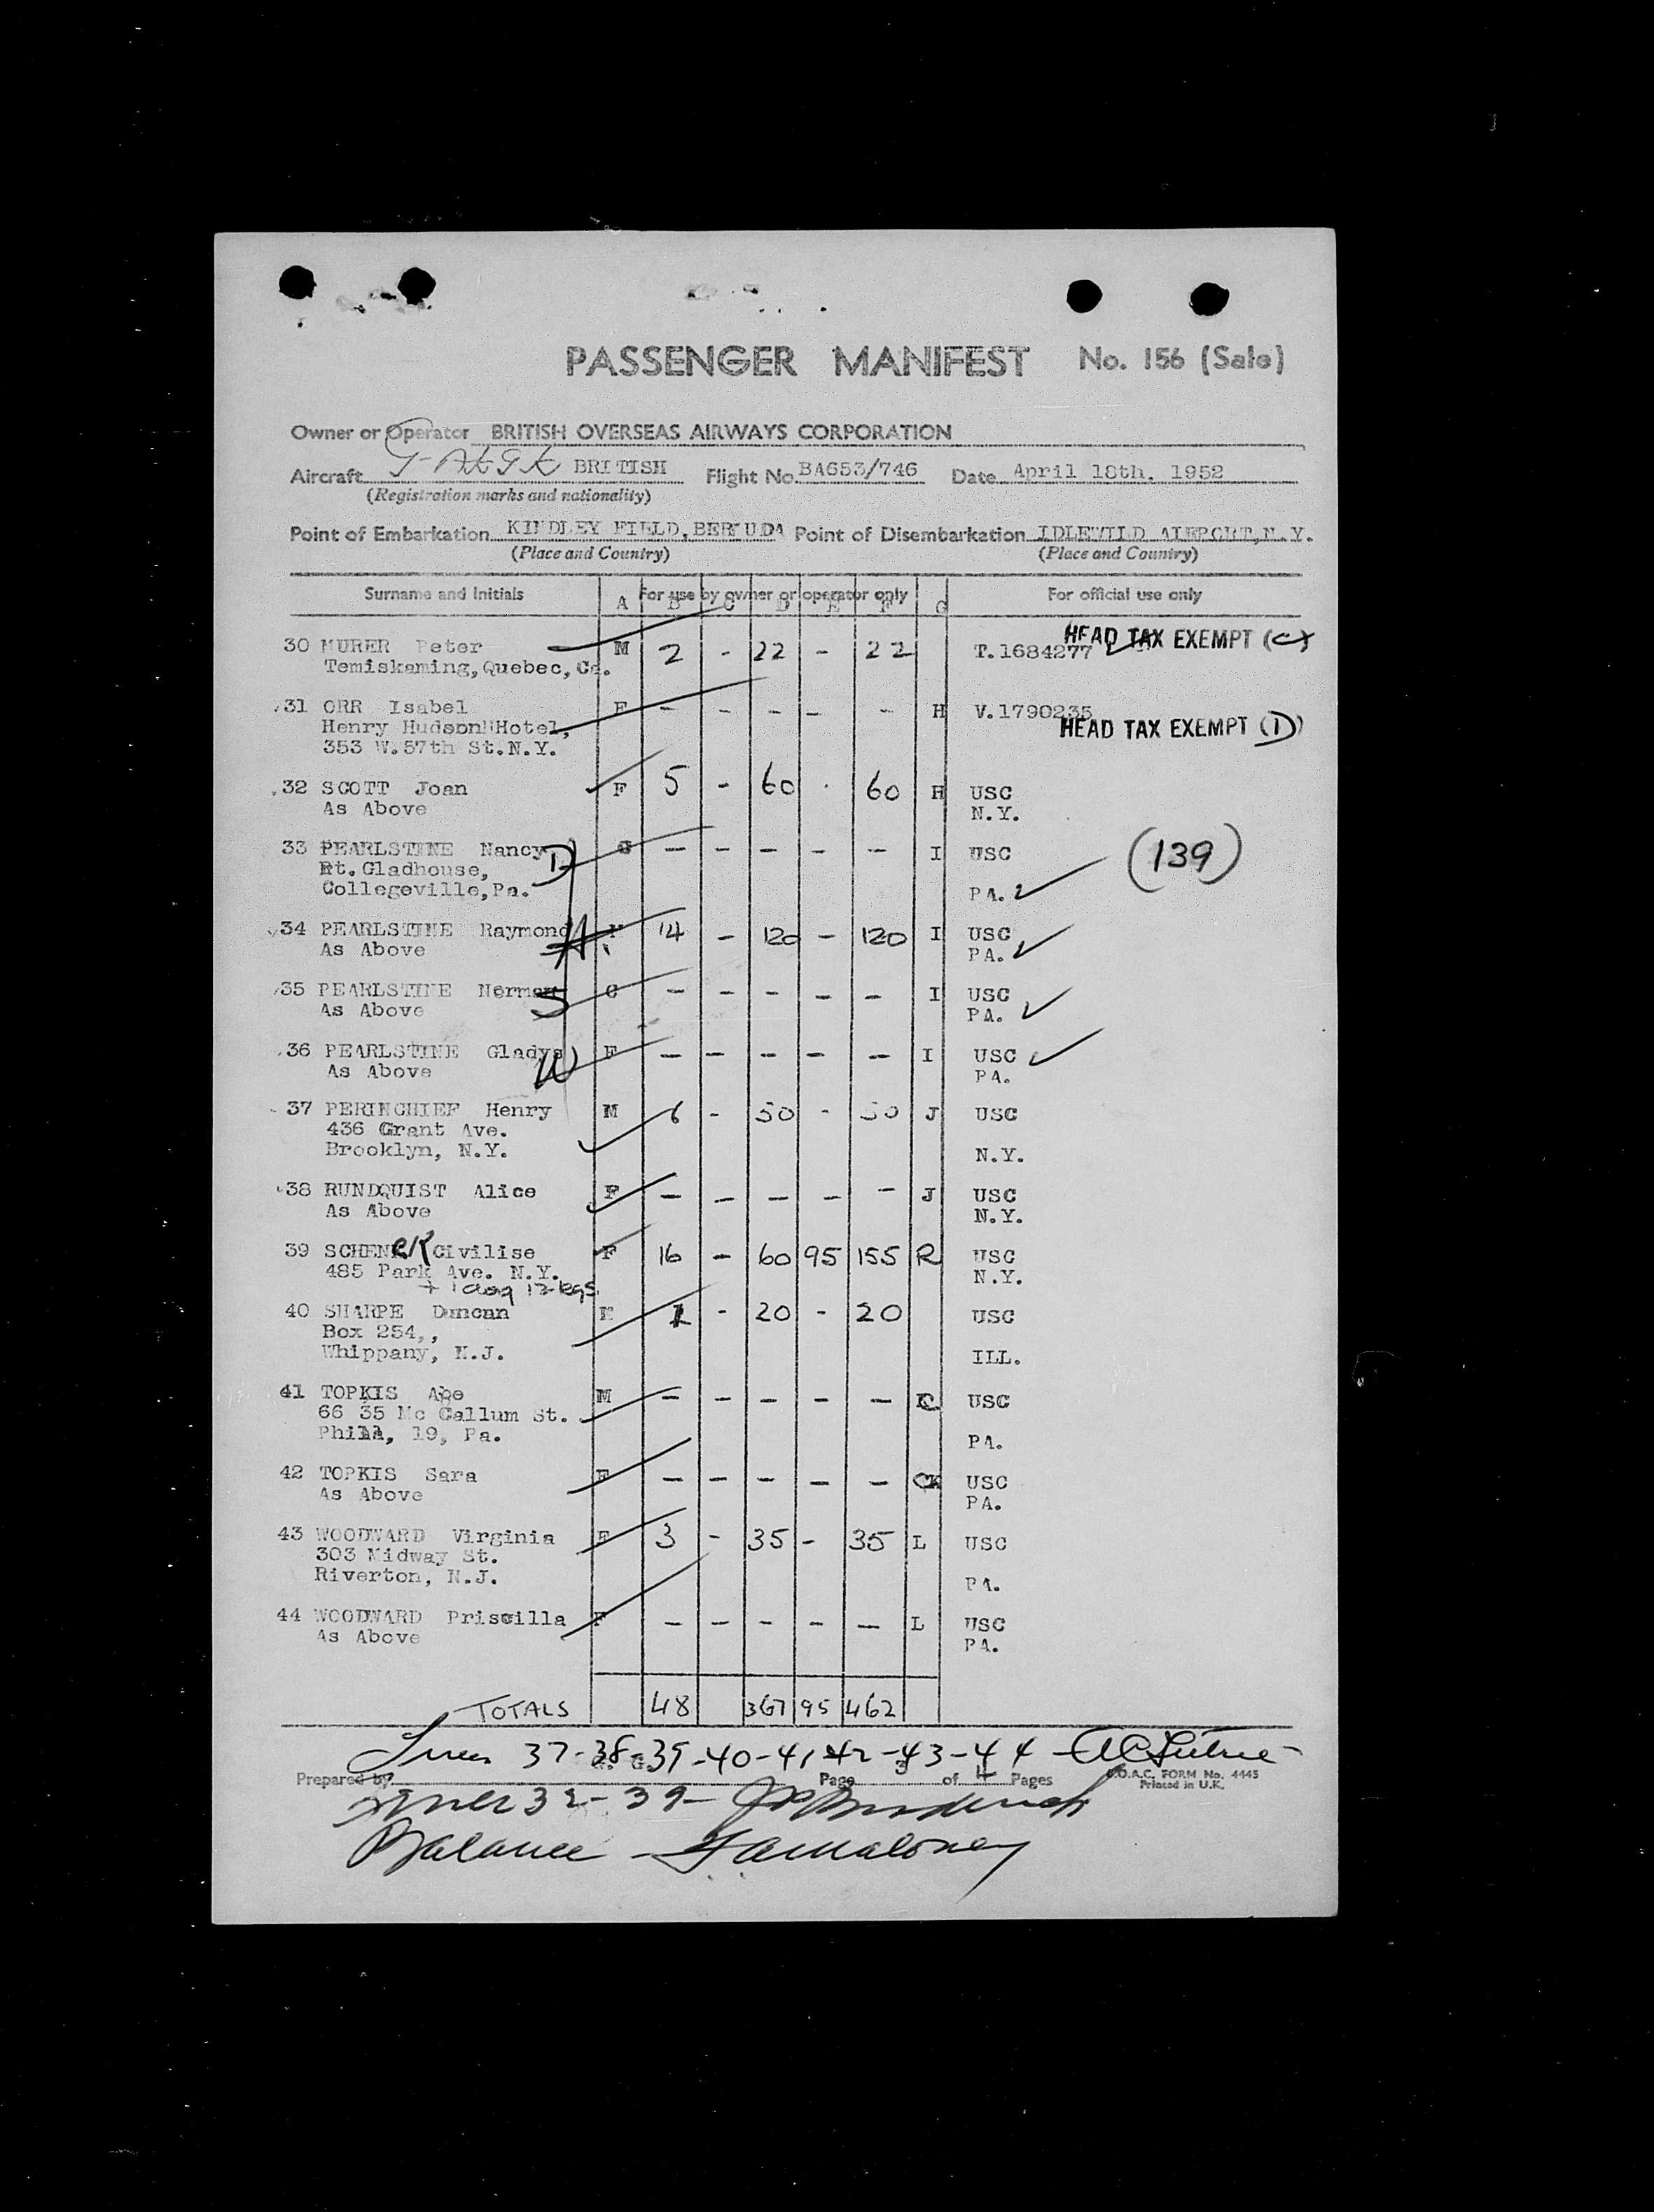 PASSENGER MANIFEST No. 156 (Sale)
Owner or Operator BRITISH OVERSEAS AIRWAYS CORPORATION
Aircraft BRITISH Flight No. BA653/746 Date April 18th, 1952
(Registration marks and nationality)
Point of Embarkation KINDLEY FIELD, BERMUDA Point of Disembarkation IDLEWILD AIRPORT, N.Y.
(Place and Country) (Place and Country)
Surname and Initials For use by owner or operator only For official use only
A B C D E F G
30 MURER Peter M 2 - 22 - 22 T.1684277 HEAD TAX EXEMPT (C)
Temiskaming, Quebec, Ca.
31 ORR Isabel F - - - - - H V.1790235
Henry Hudson Hotel, HEAD TAX EXEMPT (I)
353 W.57th St.N.Y.
32 SCOTT Joan F 5 - 60 - 60 H USC
As Above N.Y.
33 PEARLSTINE Nancy D G - - - - - I USC (139)
Rt.Gladhouse,
Collegeville, Pa. PA.
34 PEARLSTINE Raymond 14 - 120 - 120 I USC
As Above PA.
35 PEARLSTINE Norman S C - - - - - I USC
As Above PA.
36 PEARLSTINE Gladys W F - - - - - I USC
As Above PA.
37 PERINCHIEF Henry M 6 - 50 - 50 J USC
436 Grant Ave.
Brooklyn, N.Y. N.Y.
38 RUNDQUIST Alice F - - - - - J USC
As Above N.Y.
39 SCHENCK Civilise F 16 - 60 95 155 R USC
485 Park Ave. N.Y. N.Y.
+ 1 dog 12 kgs
40 SHARPE Duncan M 1 - 20 - 20 USC
Box 254,,
Whippany, N.J. ILL.
41 TOPKIS Abe M - - - - - K USC
66 35 Mc Callum St.
Phila, 19, Pa. PA.
42 TOPKIS Sara F - - - - - K USC
As Above PA.
43 WOODWARD Virginia F 3 - 35 - 35 L USC
303 Midway St.
Riverton, N.J. PA.
44 WOODWARD Priscilla F - - - - - L USC
As Above PA.
TOTALS 48 367 95 462
Lines 37-38-39-40-41-42-43-44
Prepared by Page 3 of 4 Pages B.O.A.C. FORM No. 4445
Printed in U.K.
Lines 32-39-
Balance - Maloney